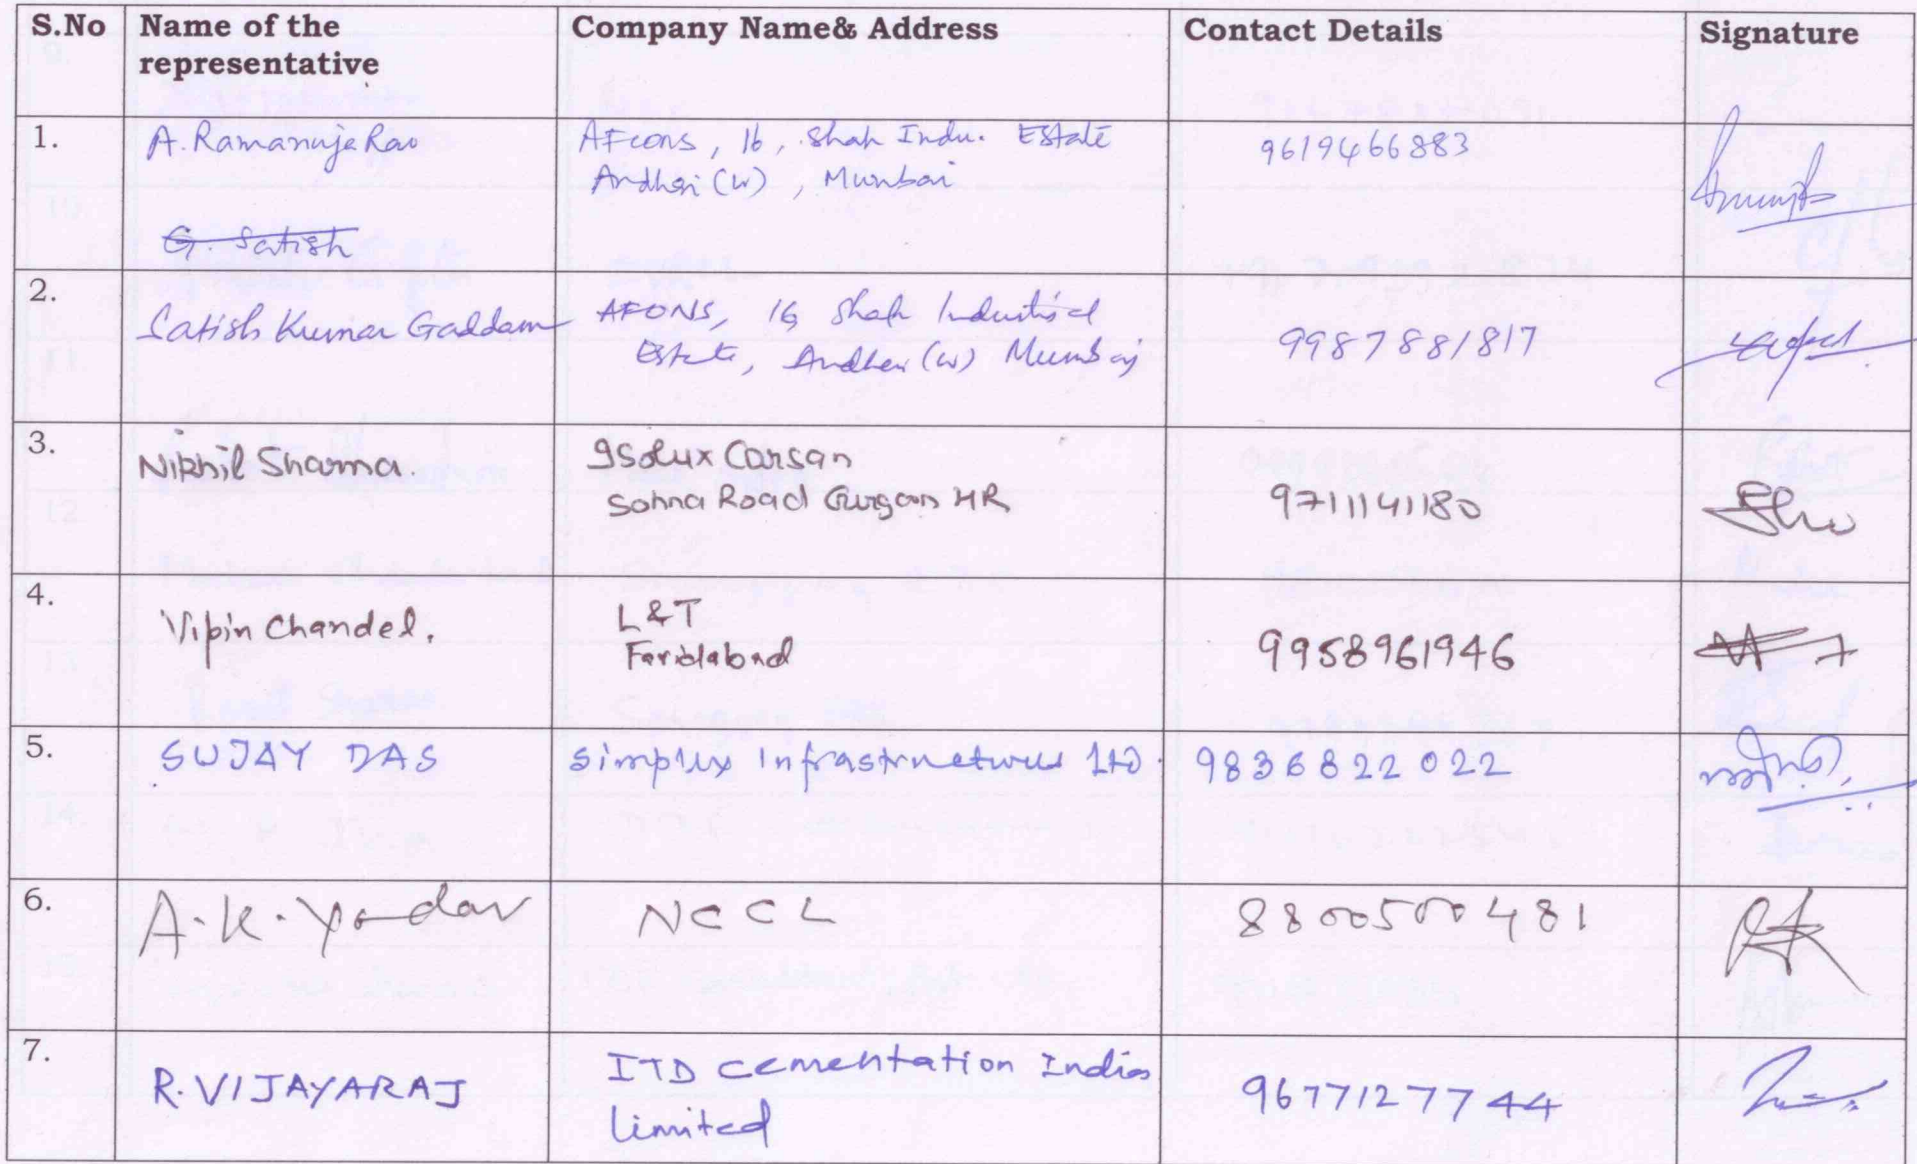 S.No Name of the representative Company Name& Address Contact Details Signature
1. A. Ramanuja Rao AFcons, 16, Shah Indu. Estate 9619466883
Andheri (W), Mumbai
G. Satish
2. Satish Kumar Gaddam AFONS, 16 Shah Industrial
Estate, Andheri (W) Mumbai 9987881817
3. Nikhil Sharma. Isolux Corsan
Sohna Road Gurgaon HR 9711141180
4. Vipin Chandel. L&T
Faridabad 9958961946
5. SUJAY DAS Simplex Infrastructures Ltd. 9836822022
6. A.K. Yadav NCCL 8800500481
7. R. VIJAYARAJ ITD Cementation India
Limited 9677127744